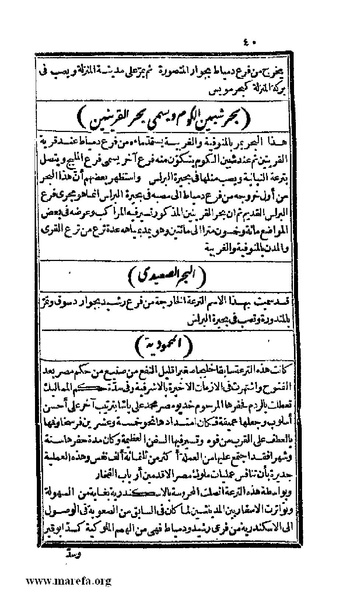 ٤٠
يخرج من فرع دمياط بجوار المنصورة ثم يمر على مدينة المنزلة ويصب فى
بركة المنزلة كبحر مويس
(بحر شبين الكوم ويسمى بحر القرينين)
هذا البحر يمر بالمنوفية والغربية يستمد ماءه من فرع دمياط عند قرية
القرينين ثم عند شبين الكوم يتكون منه فرع آخر يسمى فرع المليج ويتصل
بترعة النبانة ويصب منها فى بحيرة البرلس واستظهر بعضهم أن هذا البحر
من أول خروجه من فرع دمياط الى مصبه فى بحيرة البرلس انما هو مجرى فرع
البرلس القديم ثم ان بحر القرينين المذكور تسير فيه المراكب وعرضه فى بعض
المواضع مائة وخمسون مترا الى مائتين وهو يمد بمياهه عدة ترع من ترع القرى
والمدن بالمنوفية والغربية
(البحر الصعيدى)
قد سميت بهذا الاسم الترعة الخارجة من فرع رشيد بجوار دسوق وتمر
بالمندورة وتصب فى بحيرة البرلس
(المحمودية)
كانت هذه الترعة سابقا خليجا صغيرا قليل النفع من صنيع من حكم مصر بعد
الفتوح واشتهرت فى الازمان الاخيرة بالاشرفية وفى مدة حكم المماليك
تعطلت بالردم فحفرها المرحوم خديو مصر محمد على باشا بترتيب آخر على أحسن
أسلوب وجعلها عميقة فكان امتدادها نحو خمسة وعشرين فرسخا وفمها
بالعطف على القرب من فوه وتسير فيها السفن العظيمة وكان مدة حفرها سنة
وشهرا فقد اجتمع عليها من العملة أكثر من ثلثمائة ألف نفس وهذه العملية
جديرة بأن تنافس عمليات ملوك مصر الاقدمين أو باب الفخار
وبواسطة هذه الترعة اتصلت المحروسة بالاسكندرية بغاية من السهولة
وتواترت الاسفار بين المدينتين لما كان فى السابق من الصعوبة فى الوصول
الى الاسكندرية من فرعى رشيد ودمياط فهى من الهمم الملوكية كسد أبو قير
وسد
www.marefa.org